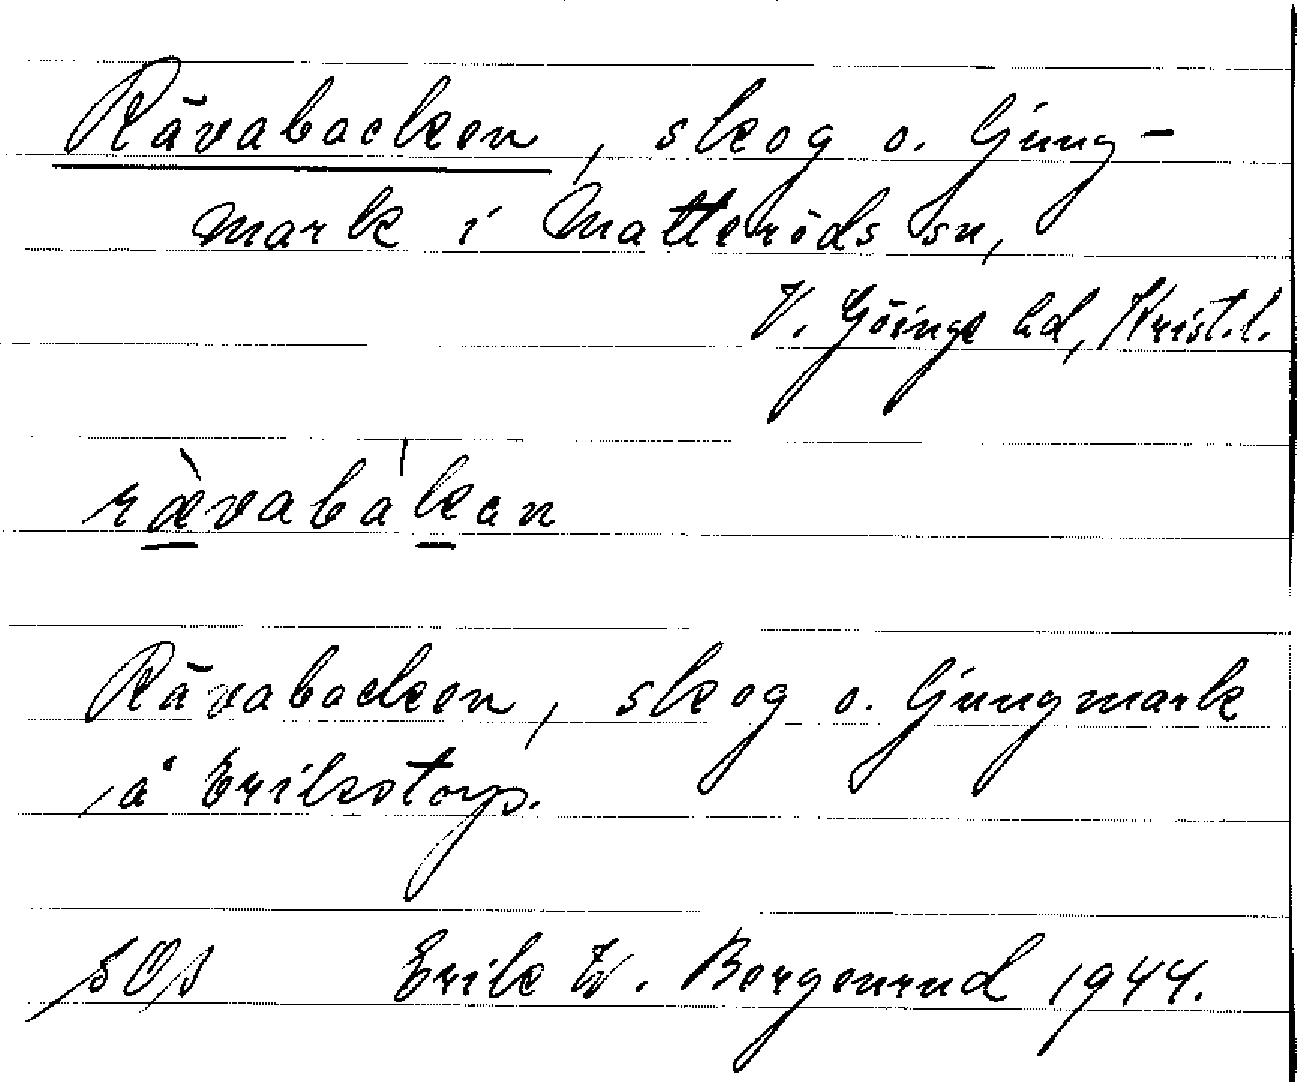 Rävabacken, skog o. ljung-
mark i Matteröds sn,
V. Göinge hd, Krist. l.
rævabakan
Rävabacken, skog o. ljungmark
å Erikstorp.
SOS Erik W. Borgenrud 1944.